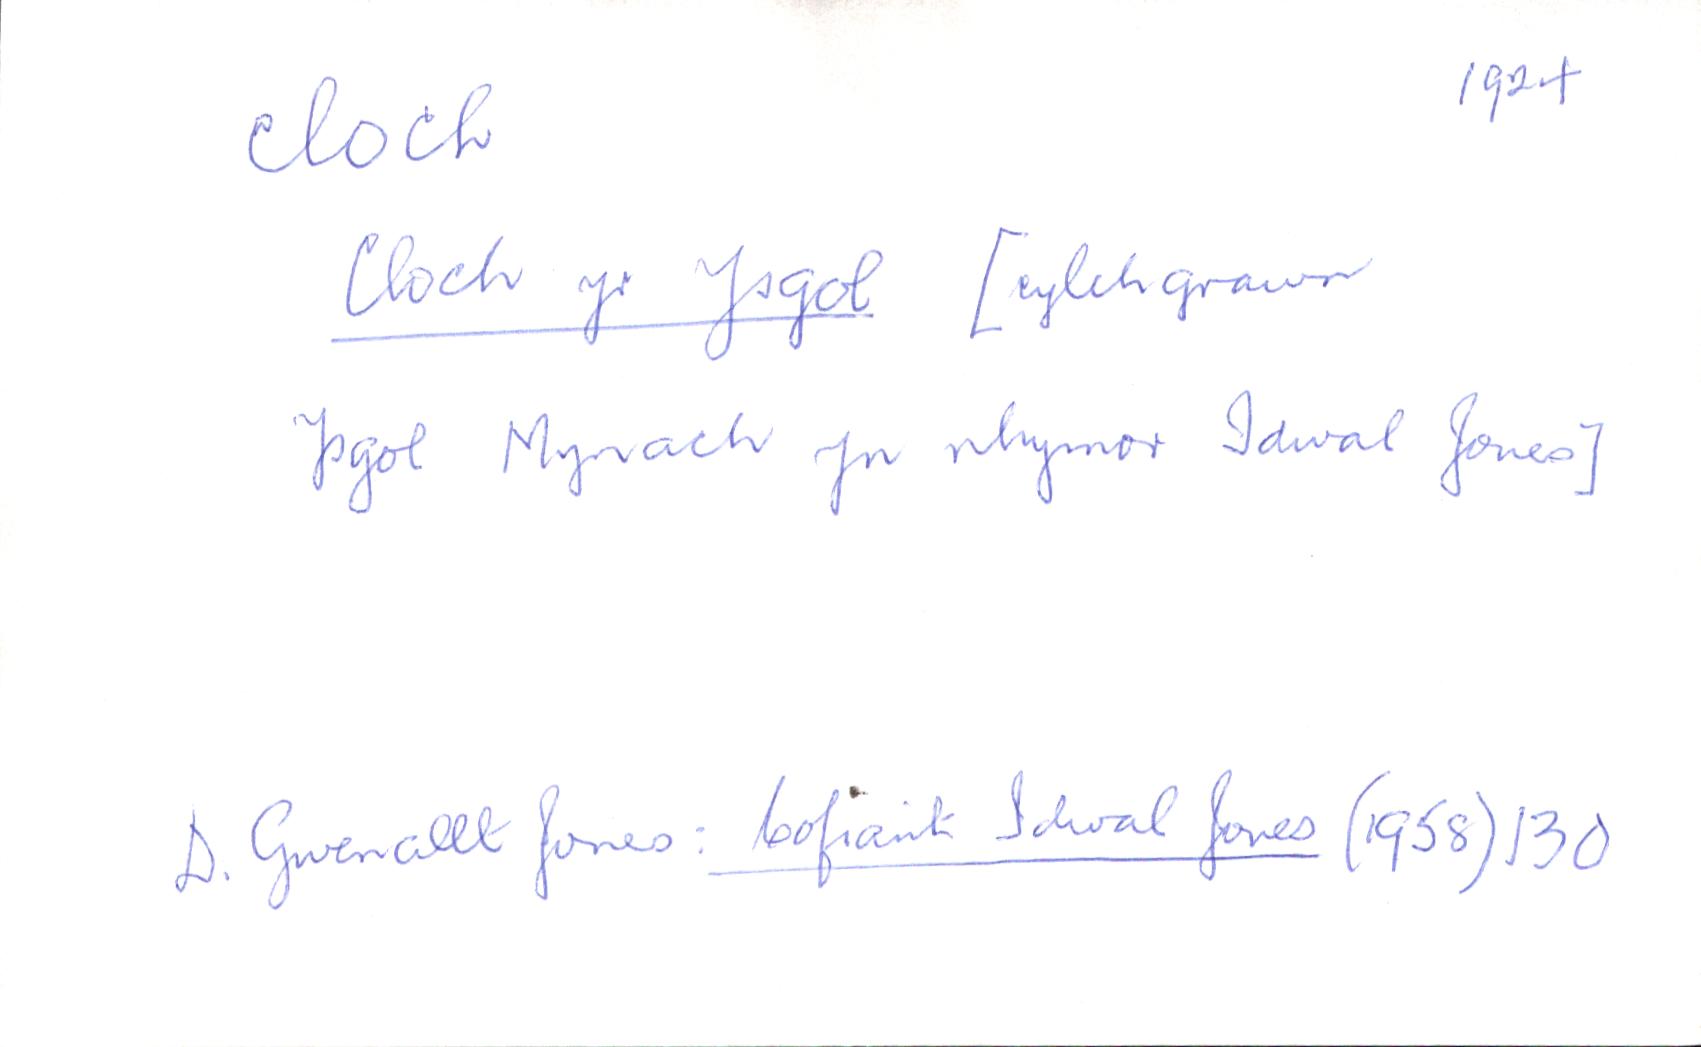 cloch 1924
Cloch yr Ysgol [cylchgrawn
Ysgol Mynach yn nhymor Idwal Jones]
D. Gwenallt Jones: Cofiant Idwal Jones (1958) 130